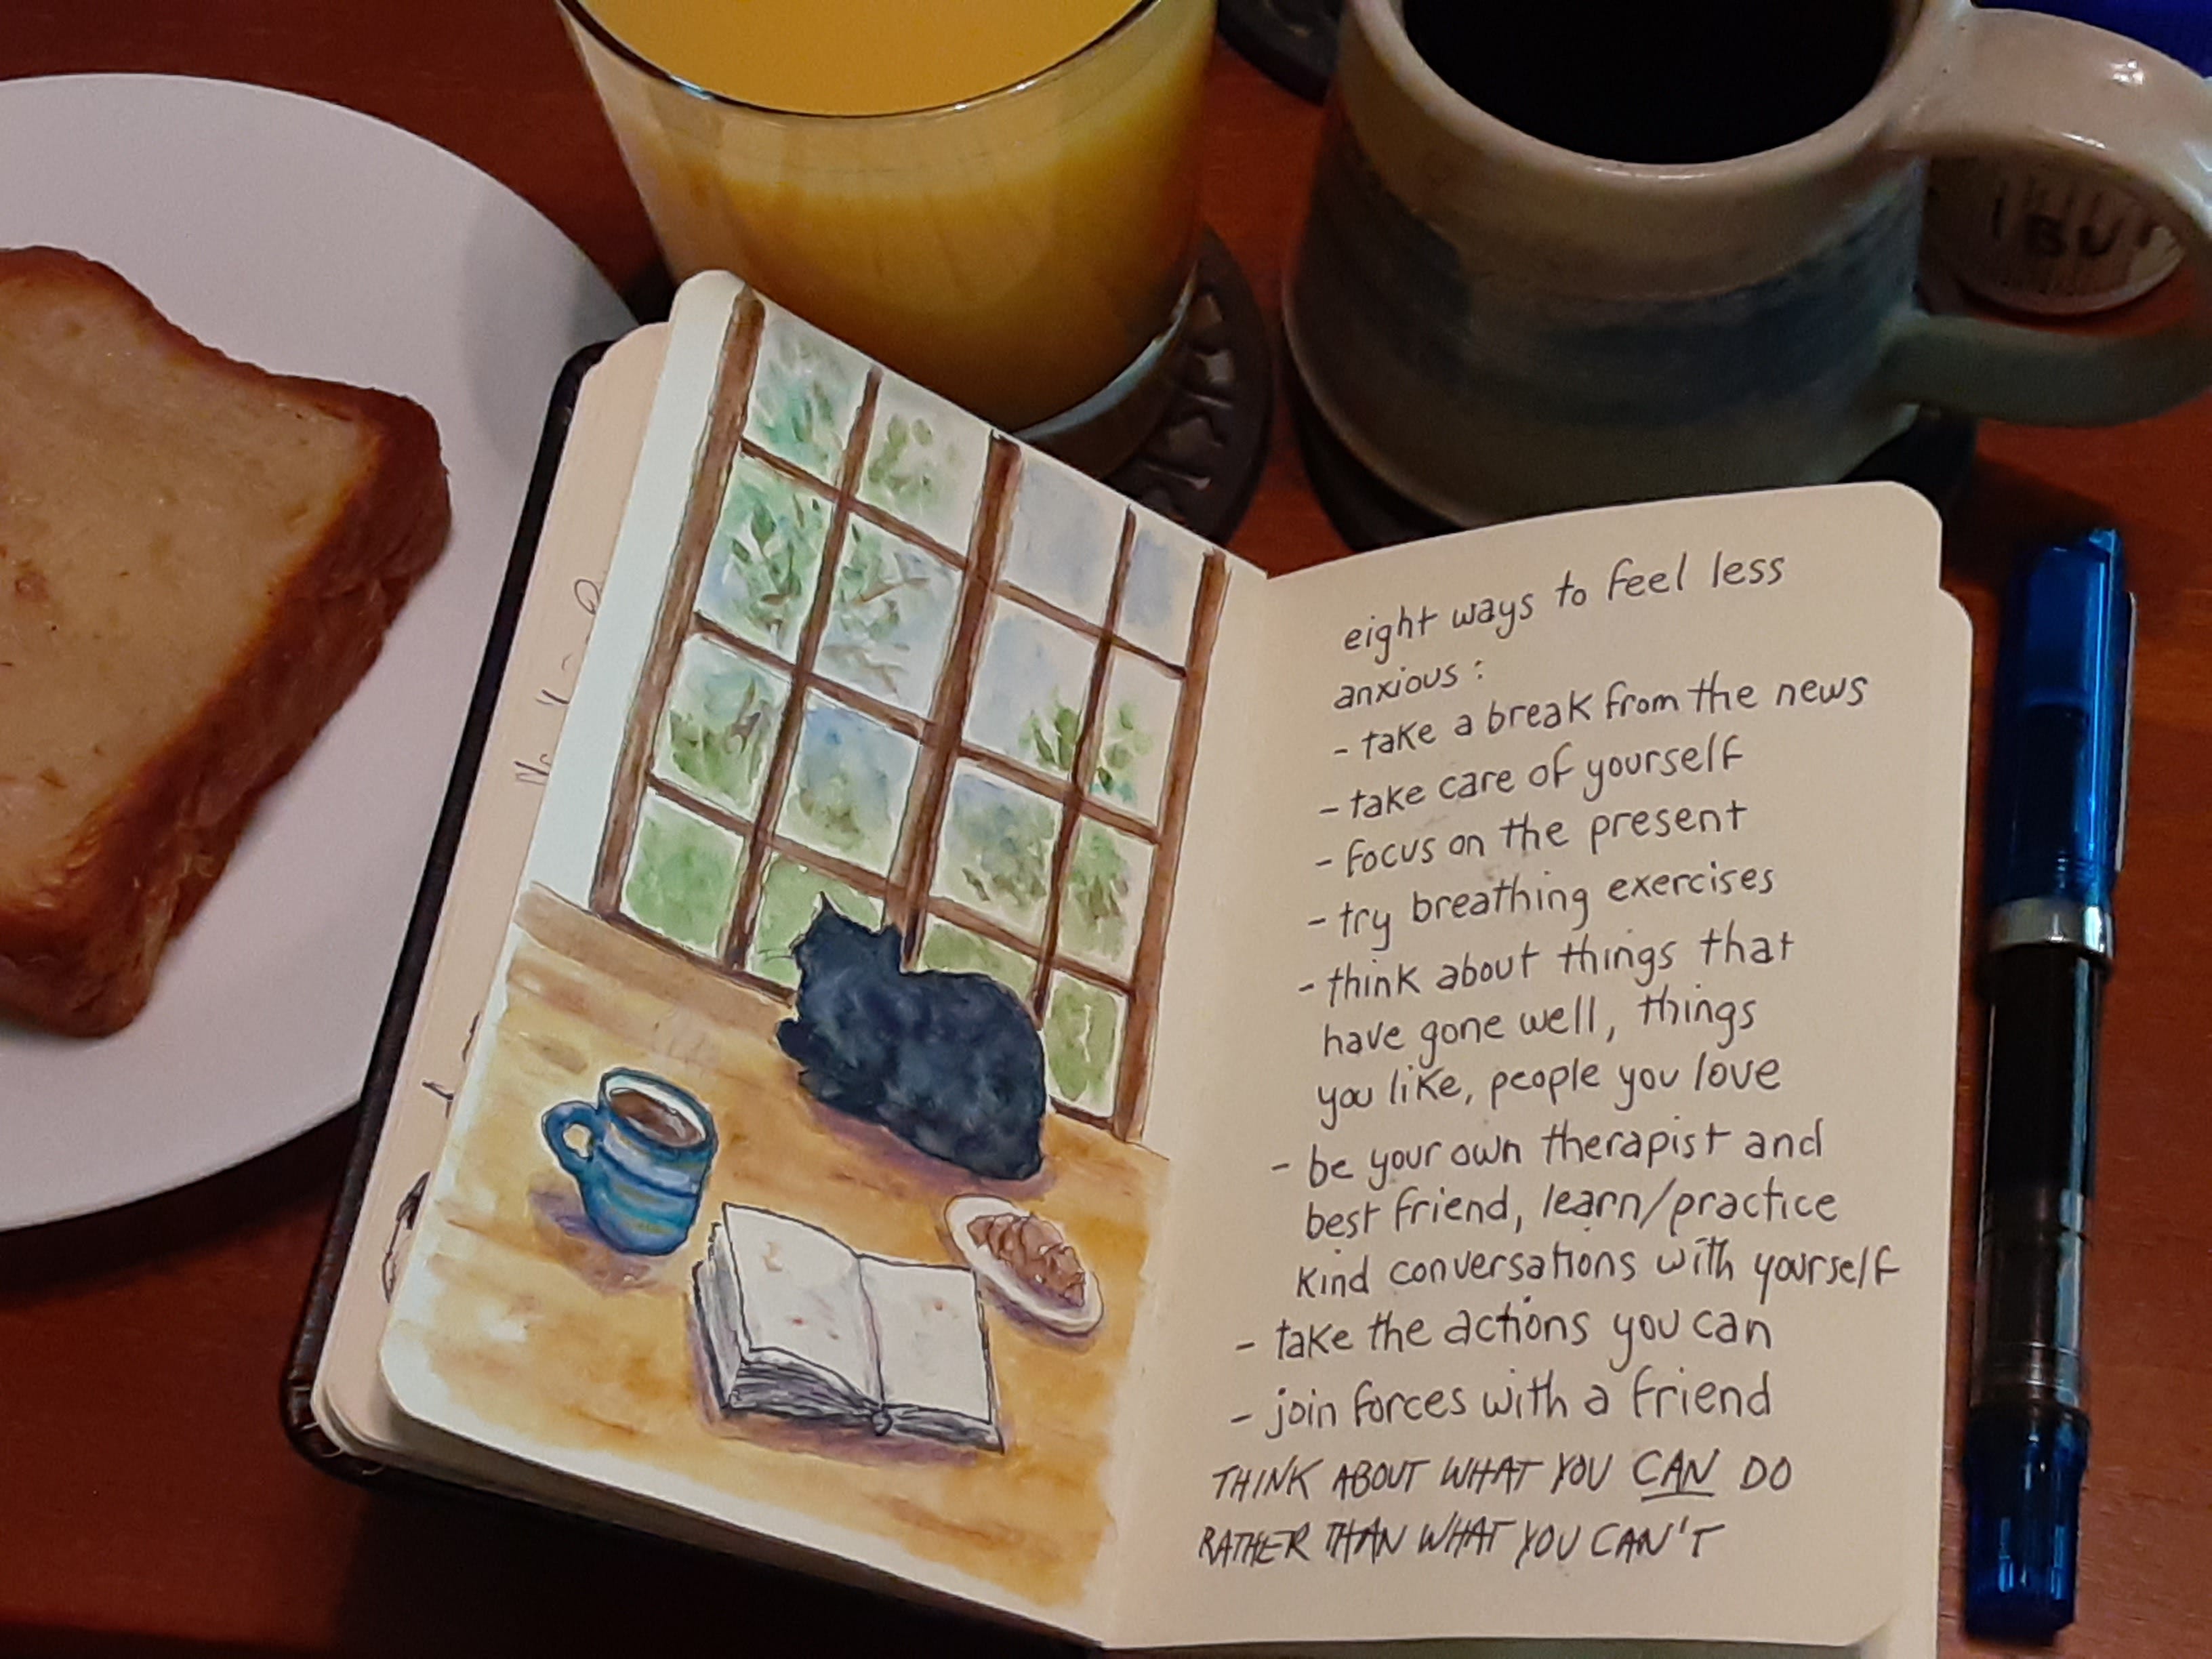 eight ways to feel less
anxious:
- take a break from the news
- take care of yourself
- focus on the present
- try breathing exercises
- think about things that
have gone well, things
you like, people you love
- be your own therapist and
best friend, learn/practice
kind conversations with yourself
- take the actions you can
- join forces with a friend
THINK ABOUT WHAT YOU CAN DO
RATHER THAN WHAT YOU CAN'T